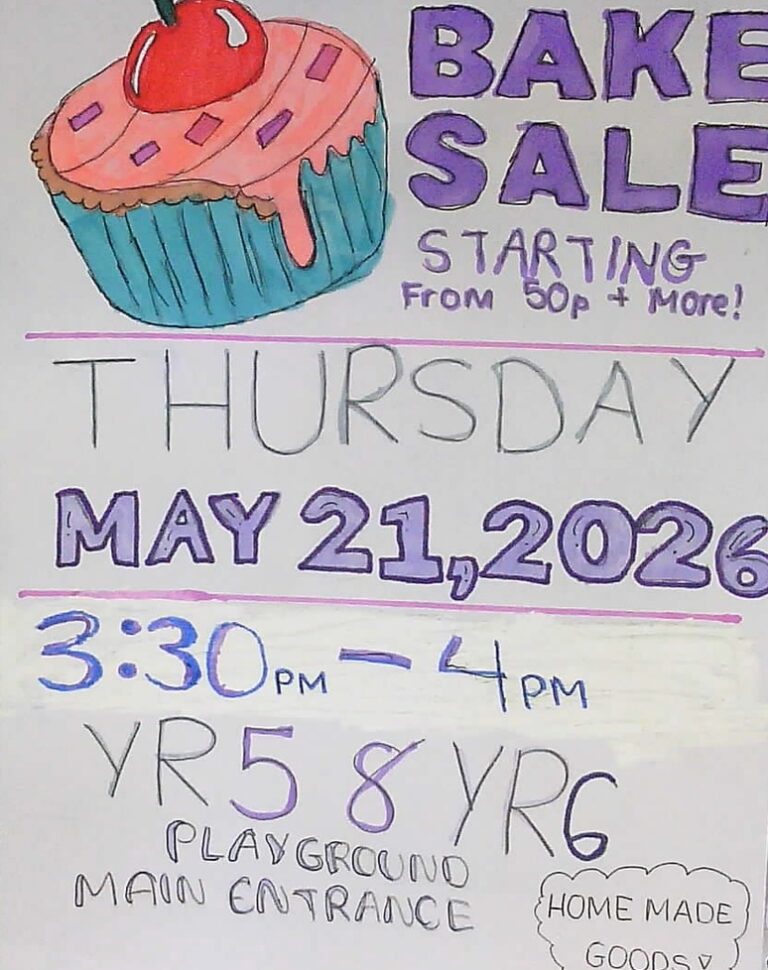 BAKE
SALE
STARTING
From 50p + More!
THURSDAY
MAY 21, 2026
3:30PM - 4PM
YR5 & YR6
PLAYGROUND
MAIN ENTRANCE
HOME MADE
GOODS